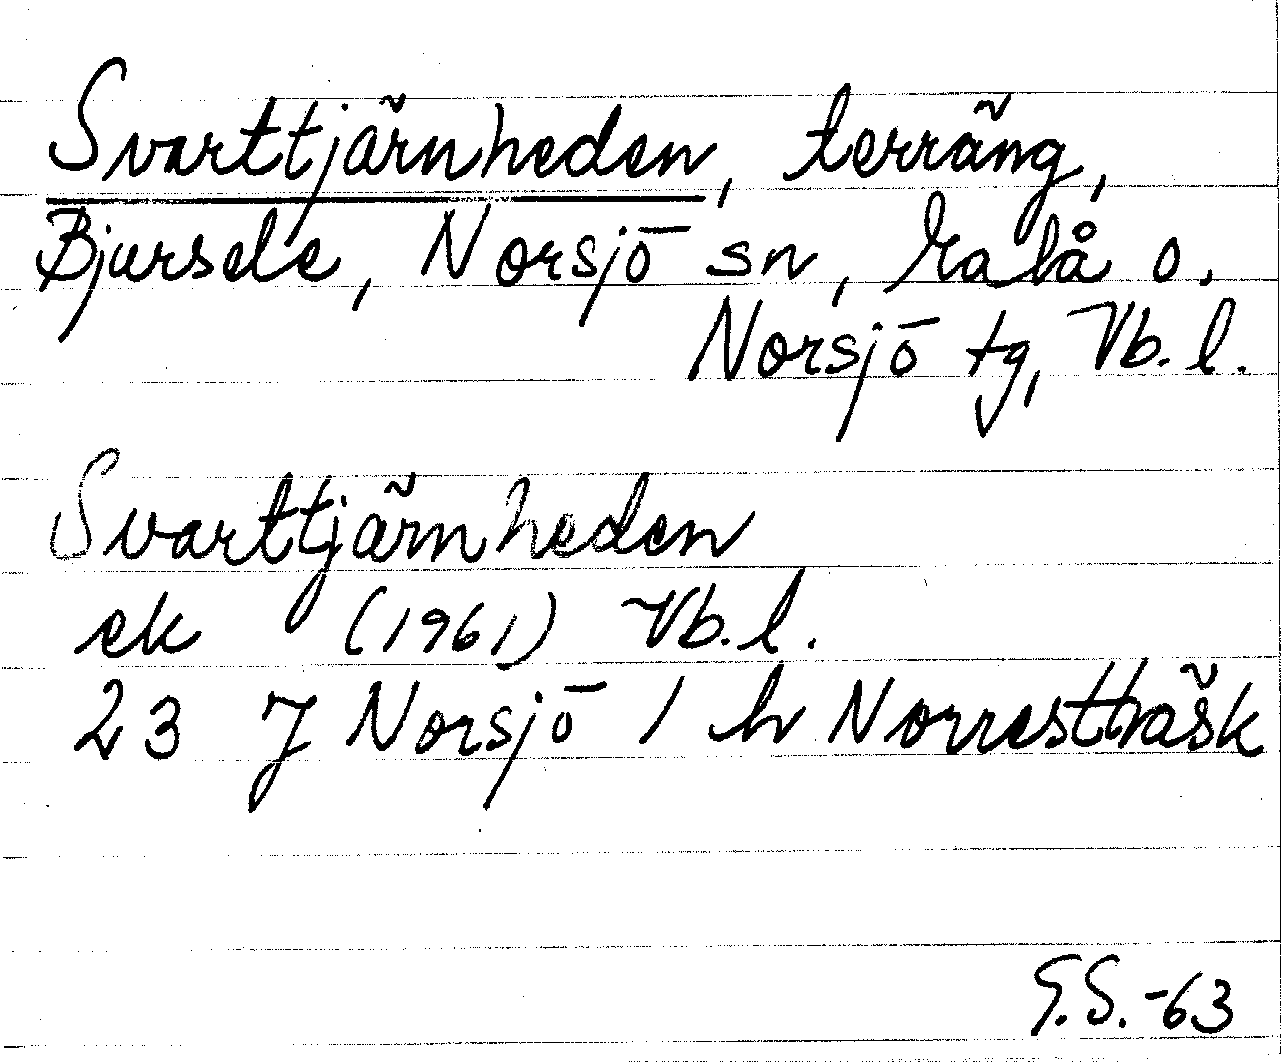 Svarttjärnheden, terräng,
Bjursele, Norsjö sn, Malå o.
Norsjö tg, Vb. l.
Svarttjärnheden
ek (1961) Vb. l.
23 J Norsjö 1 h Norrestträsk
G.S. -63